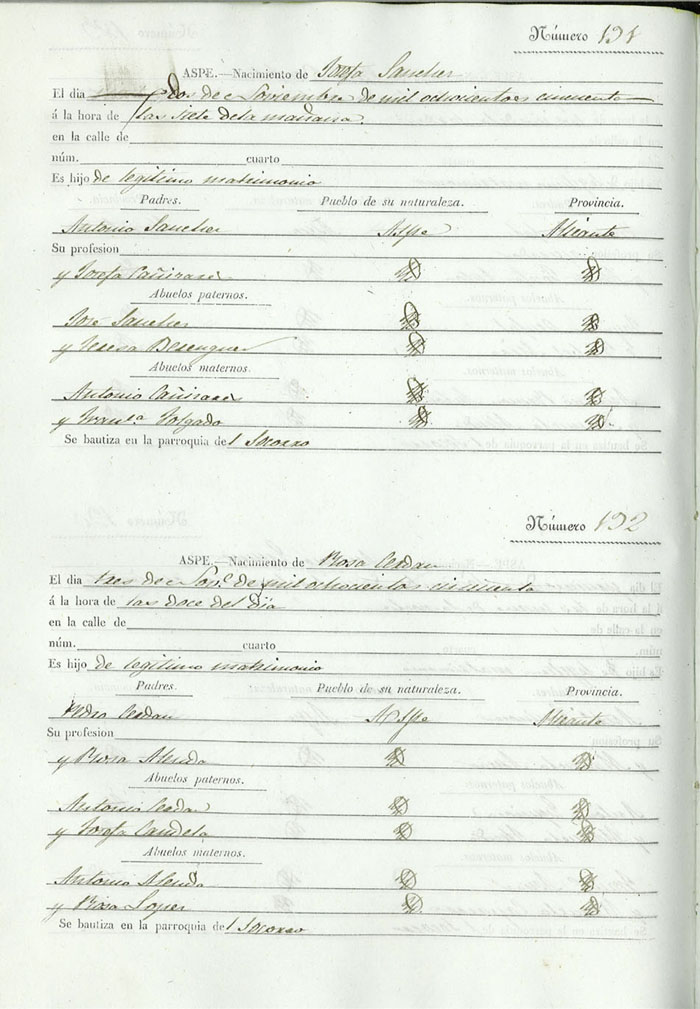 Número 191
ASPE.—Nacimiento de Josefa Sancher
El dia dos de Noviembre de mil ochocientos cincuenta
á la hora de las siete de la mañana.
en la calle de
núm. cuarto
Es hijo de legitimo matrimonio
Padres. Pueblo de su naturaleza. Provincia.
Antonio Sancher Aspe Alicante
Su profesion
y Josefa Cañizares
Abuelos paternos.
José Sancher
y Teresa Berenguer
Abuelos maternos.
Antonio Cañizares
y
Se bautiza en la parroquia del Socorro
Número 192
ASPE.—Nacimiento de Rosa Cerdan
El dia tres de Nov.e de mil ochocientos cincuenta
á la hora de las doce del dia
en la calle de
núm. cuarto
Es hijo de legitimo matrimonio
Padres. Pueblo de su naturaleza. Provincia.
Pedro Cerdan Aspe Alicante
Su profesion
y Rosa Alenda
Abuelos paternos.
Antonio Cerdan
y Josefa Candela
Abuelos maternos.
Antonio Alenda
y Rosa Lopez
Se bautiza en la parroquia del Socorro